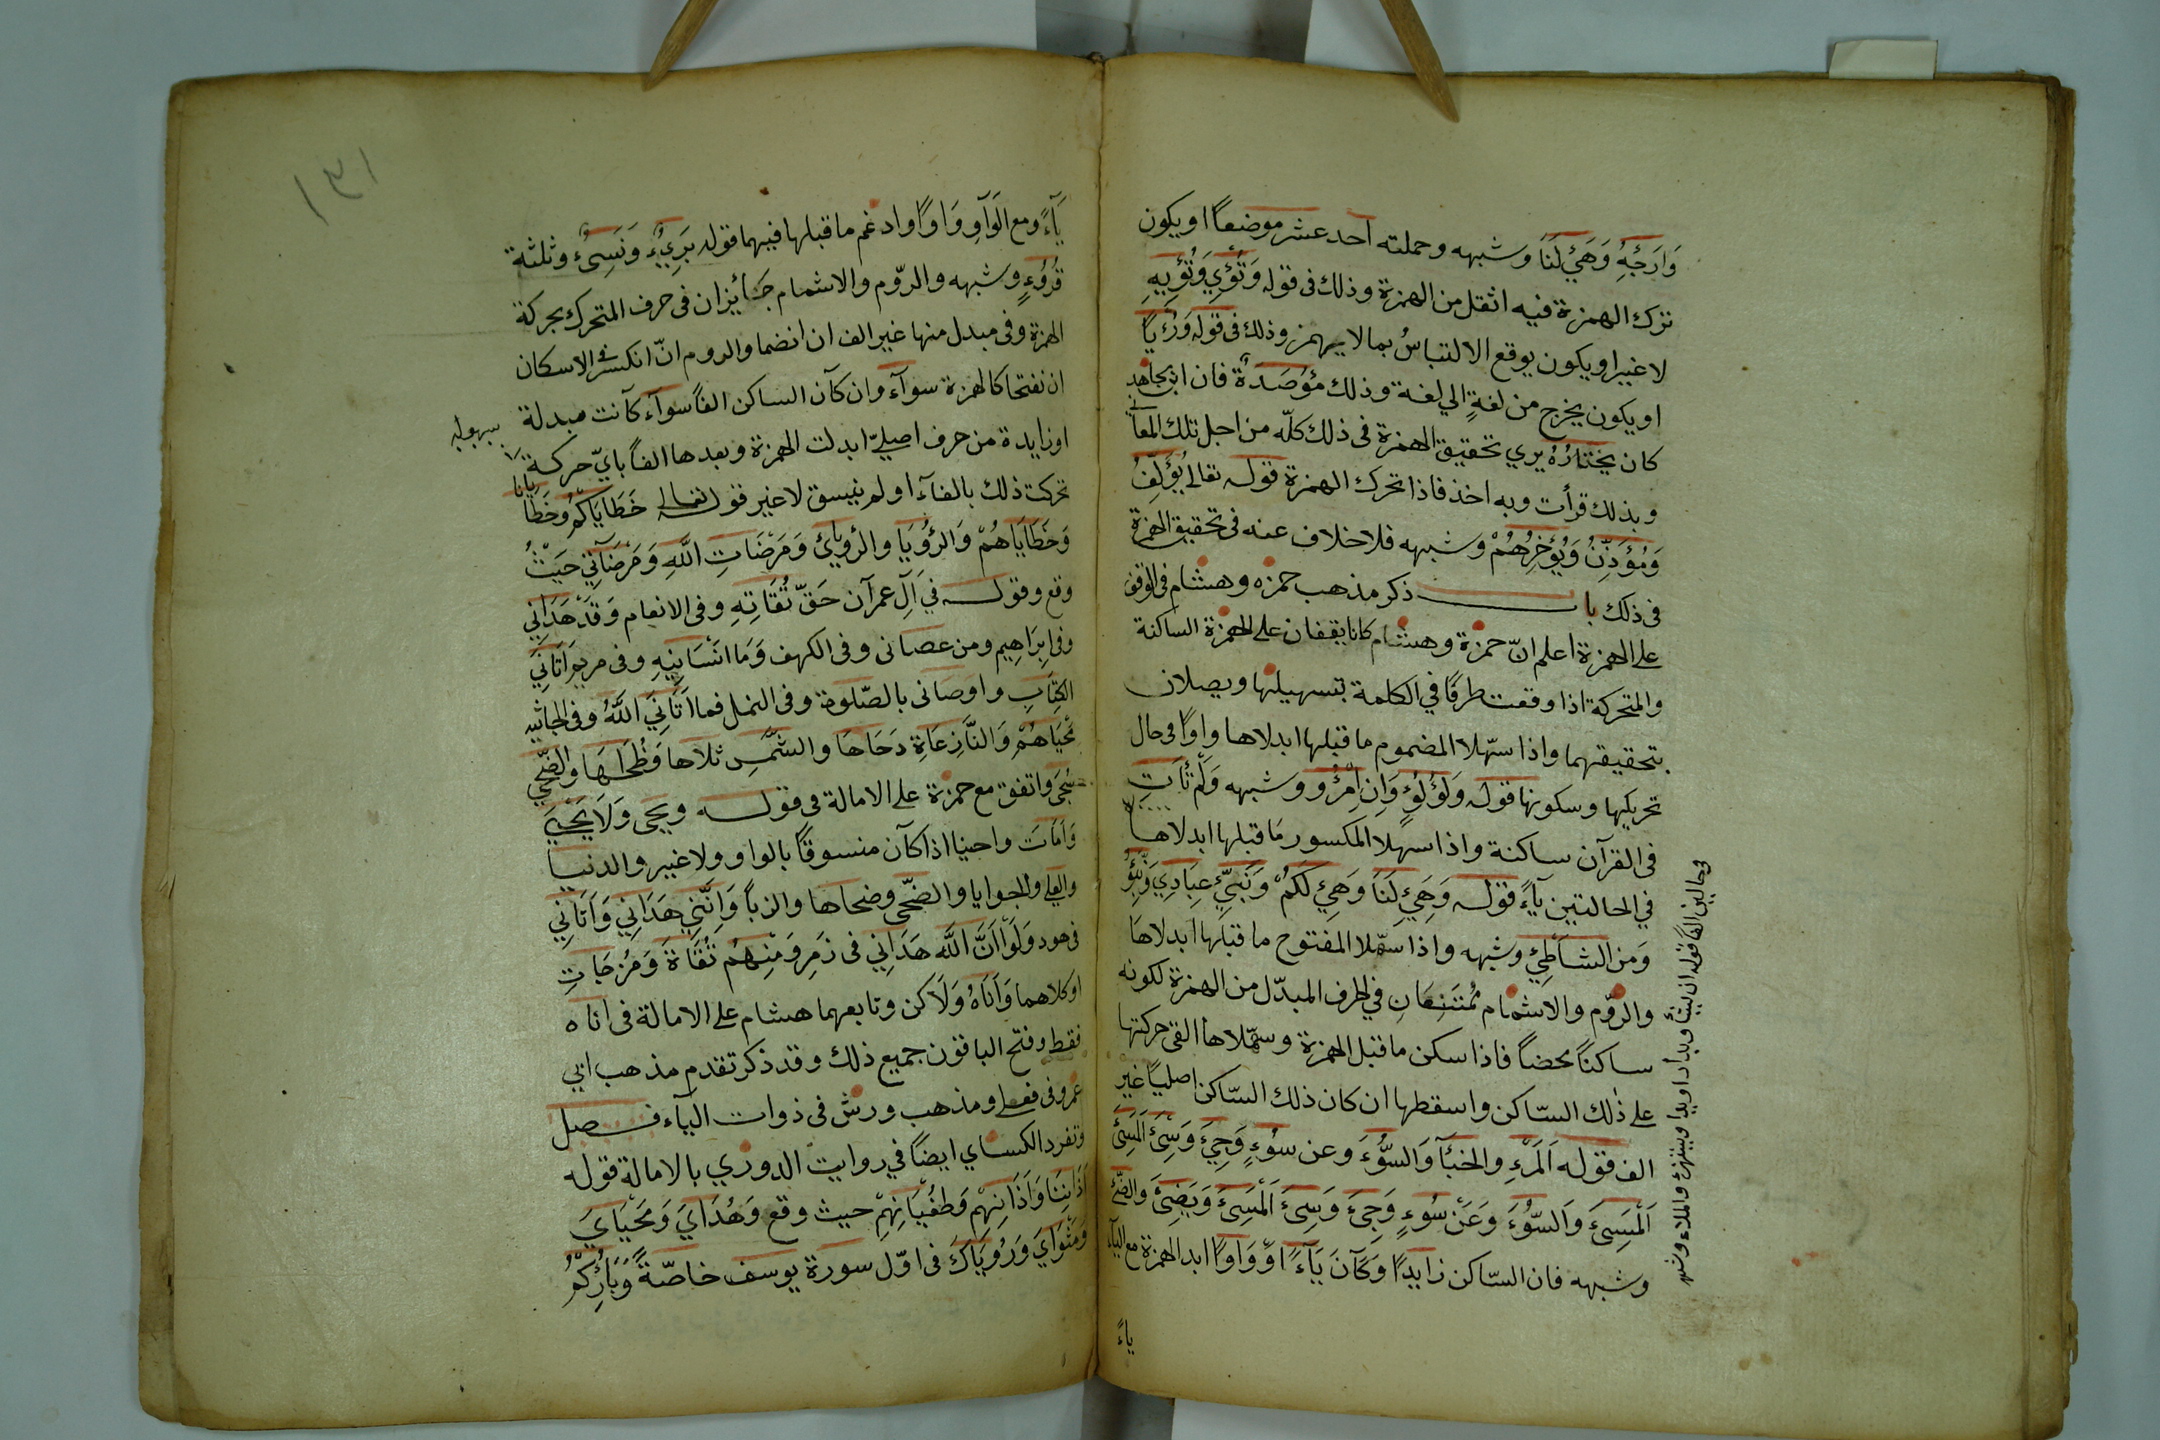 وَارَجِئْهُ وَهَيِّئْ لَنَا وشبهه وجملته احد عشر موضعاً او يكون
ترك الهمزة فيه اثقل من الهمزة وذلك فى قوله وَتُؤْي وَتُؤْيهِ
لا غير او يكون يوقع الالتباسُ بما لا يهمز وذلك فى قوله وَرُءْياً
او يكون يخرج من لغةٍ الي لغة وذلك مُؤْصَدَةٌ فان ابن مجاهد
كان يختارُهُ يري تحقيق الهمزة فى ذلك كلّه من اجل تلك المعاني
وبذلك قرأت وبه اخذ فاذا تحرك الهمزة قوله تعالى يُؤَلِّفُ
وَمُؤَذِّنٌ وَيُؤَخِّرُهُمْ وشبهه فلا خلاف عنه فى تحقيق الهمزة
فى ذلك باب ذكر مذهب حمزه وهشام فى الوقف
على الهمزة اعلم انّ حمزة وهشام كانا يقفان على الهمزة الساكنة
والمتحركة اذا وقعت طرفًا في الكلمة بتسهيلها ويصلان
بتحقيقهما واذا سهّلا المضموم ما قبلها ابدلاها واوًا فى حال
تحريكها وسكونها قوله وَلُؤْلُؤٍ وَاِنِ امْرُؤٌ وشبهه وَلَمْ تَأتِ
فى القرآن ساكنة واذا سهلا المكسور مَا قبلها ابدلاها
في الحالتين يآءً قوله وَهَيِّئْ لَنَا وَهَيِّئْ لَكُمْ وَنَبِّئْ عِبَادِي وَتُبَوِّئُ
وَمن الشاطِئِ وشبهه واذا سَهّلا المفتوح ما قبلها ابدلاها
والرَّوم والاشمام مُمْتَنِعَانِ في الحرف المبدّل من الهمزة لكونه
ساكنًا محضاً فاذا سكن ما قبل الهمزة وسهّلاها القى حركتها
على ذٰلك السّاكن واسقطها ان كان ذلك السّاكن اصليًا غير
الف قوله اَلْمَرْءِ والخبْأ وَالسُّوْءَ وعن سوُءٍ وَجِيْءَ وَسِئَ اَلْمَسِئُ
اَلْمَسِىءَ وَالسُّوْءَ وَعَنْ سُوءٍ وَجِىءَ وَسِىءَ اَلْمَسِىءَ وَيَضِىءَ والضّئ
وشبهه فان السّاكن زايدًا وَكَآنَ يَآءً اَوْ وَاوًا ابد الهمزة مع اليآء
ياءً
وحالين الفًا قوله ان يشأ وبدأ او يبدأ ويستهزئ والملاء وشبهه
١٣١
يَآءً ومع الوَاوِ وَاوًا وادغم ما قبلها فيهما قوله بَرِيْءٌ وَنَسِىْءٌ وثلثة
قُرُوْءٍ وشبهه والرّوم والاشمام جَآئزان فى حرف المتحرك بحركة
الهمزة وفى مبدل منها غير الف ان انضما والروم انّ انكسر والاسكان
ان نفتحا كالهمزة سوآء وان كآن الساكن الفاً سوآء كآنت مبدلة
او زايدة من حرف اصليّ ابدلت الهمزة وبعدها الفاً بايّ حركة
تحركت ذلك بالفآء او لم ينسق لا غير قوله تعالى خَطَايَاكُمْ وخَطَايَانَا
وَخَطَايَاهُمْ وَالرُّؤْيَا والرّوياىَ وَمَرْضَاتِ اللهِ وَمَرْضَآتِي حَيْثُ
وقع وقوله فى آلِ عمرآن حَقَّ تُقَاتِهِ وفى الانعام وَقَدْ هَدَانِي
وفى ابرَاهِيم ومن عصانى وفى الكهف وَمَا انْسَانِيهِ وفى مريم اَتَانِيَ
الكِتَابَ واوصَانى بالصّلوة وفى النمل فما اَتَانِيَ اللهُ وفى الجاثيه
مَحْيَاهُمْ وَالنَّازِعَاةِ دَحَاهَا والشَّمْسِ تَلَاهَا وَطَحَاهَا والضّحى
سَجى واتفق مع حمزة على الامالة فى قوله ويحيى وَلَا يَحْيَى
وَاَمَاتَ واحيا اذا كآن منسوقًا بالواو ولا غير والدنيا
والعلى والحوايا والضحى وضحاها والزباً وَاِنَّنِي هَدَانِي وَآتَانِي
فى هود وَلَوْ اَنَّ اللهَ هَدَانِي فى زمر وَمِنْهُمْ تُقَاةً وَمُزْجَاتِ
او كلاهما وَاَنَاهُ وَلَاكن وتابعهما هشام على الامالة فى اناه
فقط وفتح الباقون جميع ذلك وقد ذكر تقدم مذهب ابي
عمرو فى فعلى ومذهب ورش فى ذوات اليآء فصل
وتفرد الكساي ايضًا في روايت الدوري بالامالة قوله
اَذَانِنَا وَاَذَانِهِمْ وَطُغْيَانِهِمْ حيث وقع وَهُدَايَ وَمَحْيَايَ
وَمَثْوَايَ وَرُويَاكَ فى اوّل سورة يوسف خاصّةً وَبَارِئِكُمُ